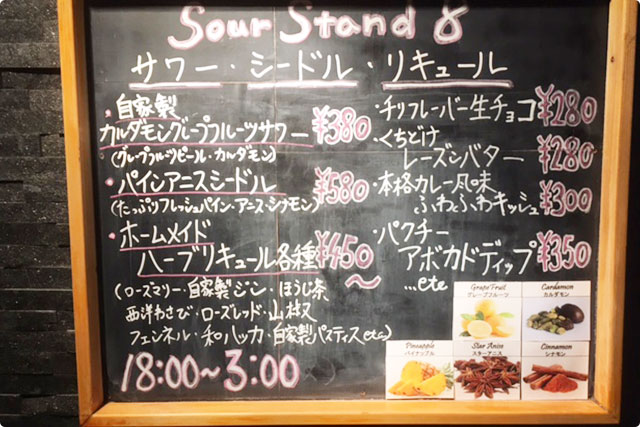 Sour Stand 8
サワー・シードル・リキュール
・自家製
カルダモングレープフルーツサワー ¥380
(グレープフルーツピール・カルダモン)
・パインアニスシードル ¥580
(たっぷりフレッシュパイン・アニス・シナモン)
・ホームメイド
ハーブリキュール各種 ¥450～
(ローズマリー・自家製ジン・ほうじ茶
西洋わさび・ローズレッド・山椒
フェンネル・和ハッカ・自家製パスティス etc)
18:00～3:00
・チリフレーバー生チョコ ¥280
・くちどけ
レーズンバター ¥280
・本格カレー風味
ふわふわキッシュ ¥300
・パクチー
アボカドディップ ¥350
...etc
Grape Fruit
グレープフルーツ
Cardamon
カルダモン
Pineapple
パイナップル
Star Anise
スターアニス
Cinnamon
シナモン